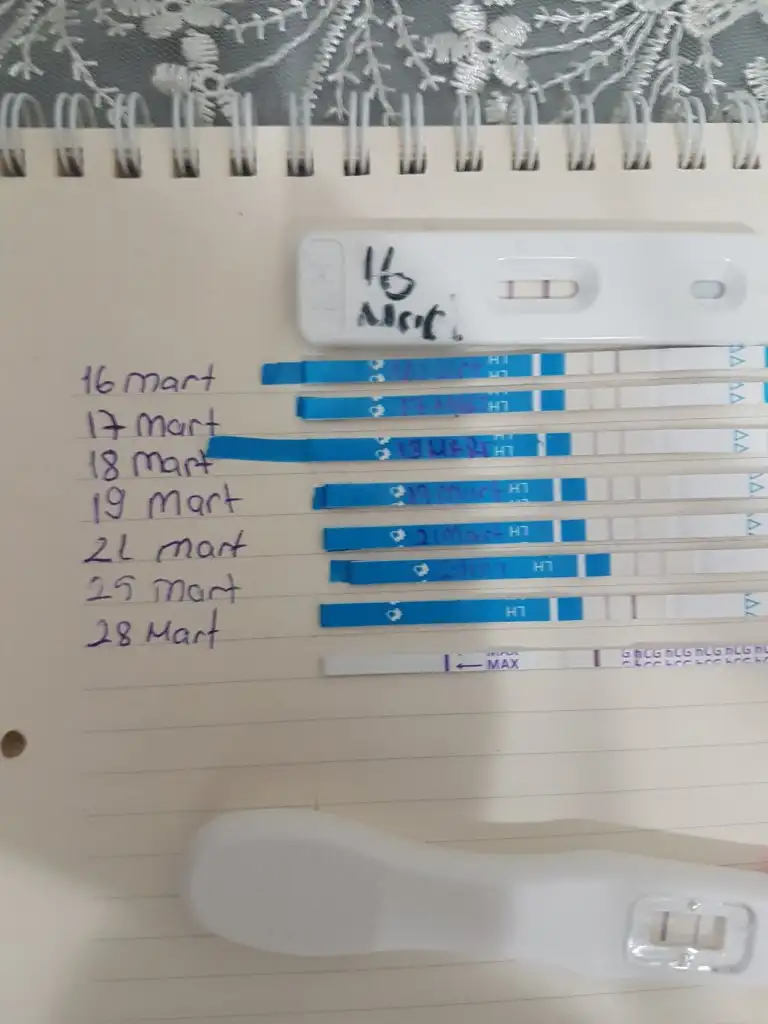 16
Mart
16 mart
LH
LH
17 Mart
LH
18 Mart
18 Mart
LH
19 Mart
19 Mart
LH
21 mart
21 Mart
LH
25 Mart
LH
28 Mart
LH
← MAX
hCG hCG hCG